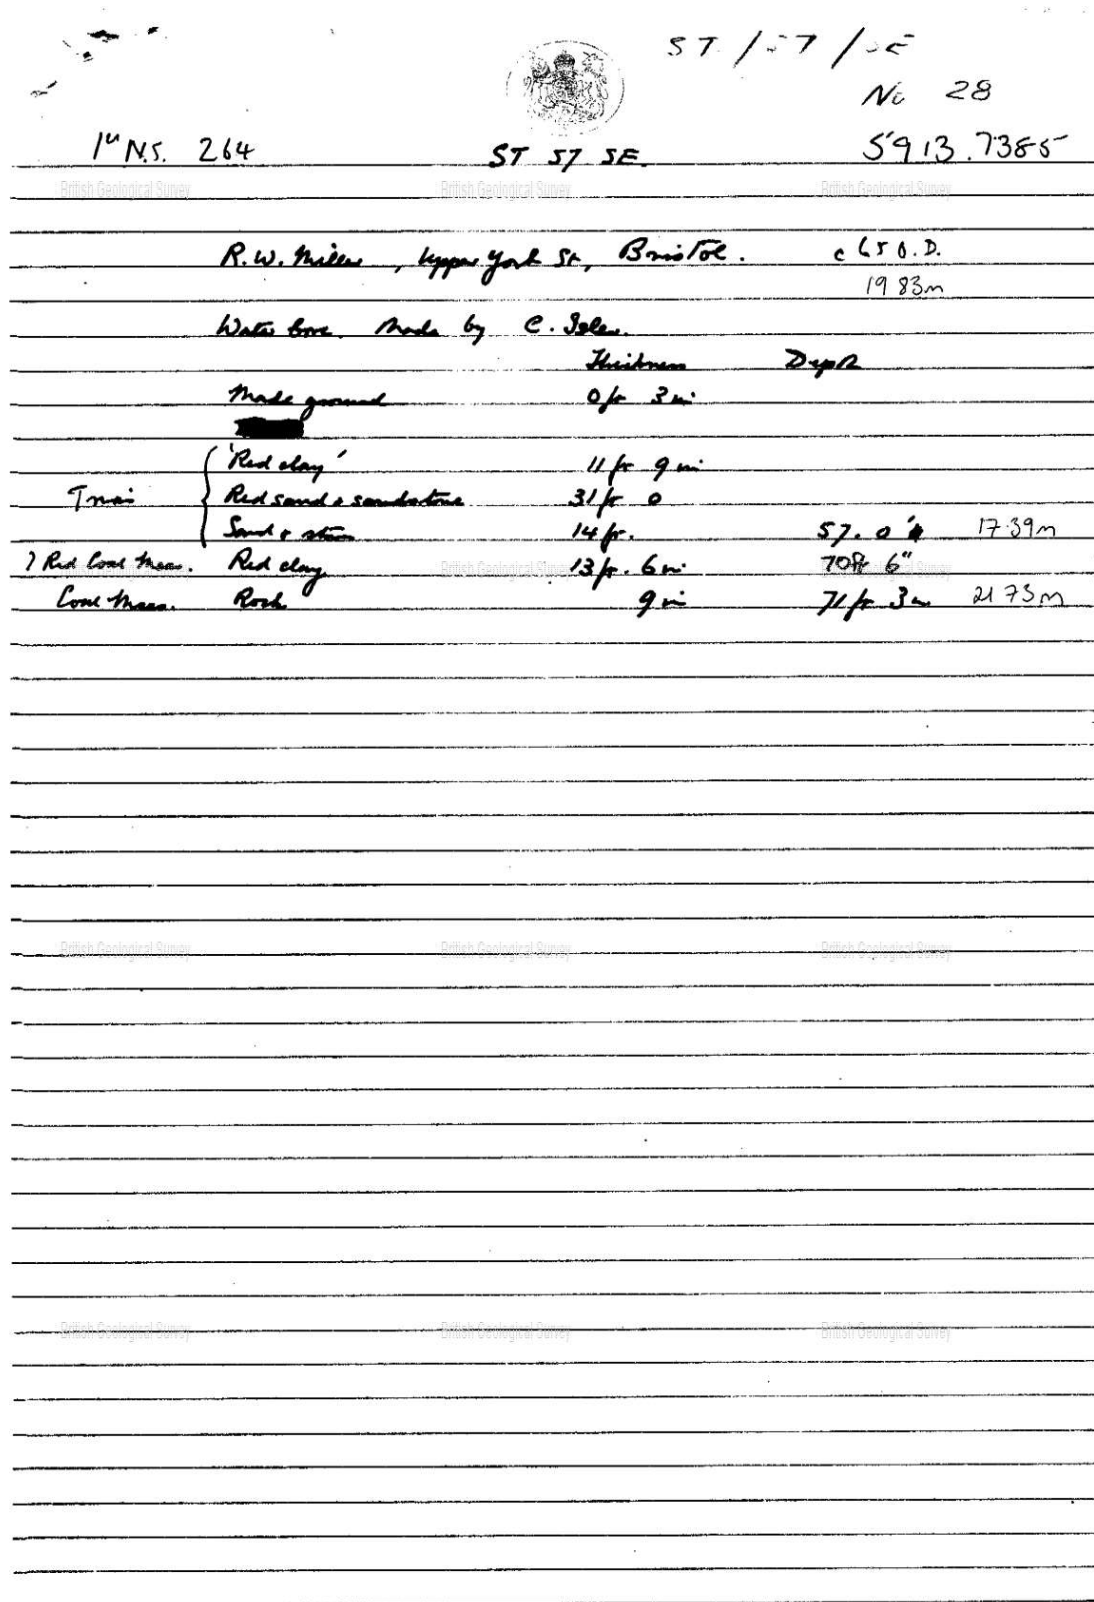 ST / 57 / SE
No 28
1" N.S. 264 ST 57 SE. 5913.7385
British Geological Survey British Geological Survey British Geological Survey
R.W. Miller, Upper York St, Bristol. c 65 O.D.
19 83m
Water bore. Made by C.
Thickness Depth
Made ground 0 ft 3 in
'Red clay' 11 ft 9 in
Trias Red sand & sandstone 31 ft 0
Sand & 14 ft. 57. 0" 17.39m
? Red Coal Meas. Red clay 13 ft. 6 in 70ft 6"
Coal Meas. Rock 9 in 71 ft 3 in 21 73m
British Geological Survey
British Geological Survey British Geological Survey British Geological Survey
British Geological Survey British Geological Survey British Geological Survey